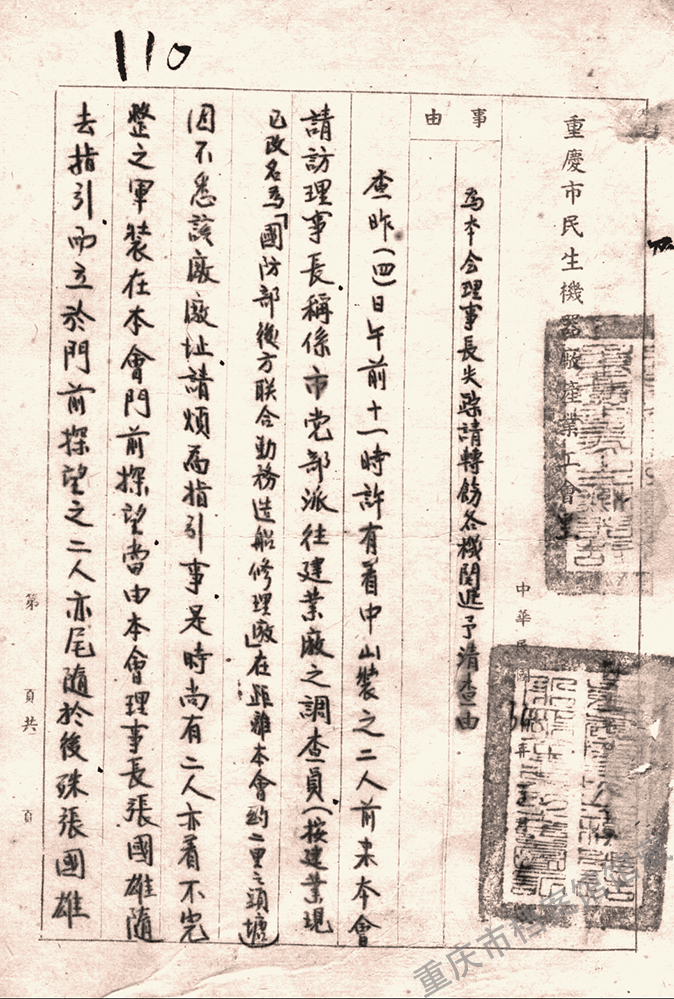 110
重慶市民生機器廠產業工會
中華民國
事由
為本会理事長失踪請轉飭各機関進予清查由
查昨(四)日午前十一時許有着中山裝之二人前来本會
請訪理事長稱係市党部派往建業廠之調查員(按建業現
已改名為「國防部後方联合勤務造船修理廠」在距離本會約二里之頭塘)
因不悉該廠廠址請煩為指引事是時尚有二人亦着不完
整之軍裝在本會門前探望當由本會理事長張國雄隨
去指引而立於門前探望之二人亦尾隨於後殊張國雄
第 頁共 頁
重庆市档案馆